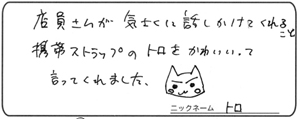 店員さんが気さくに話しかけてくれること
携帯ストラップのトロをかわいいって
言ってくれました、
ニックネーム トロ